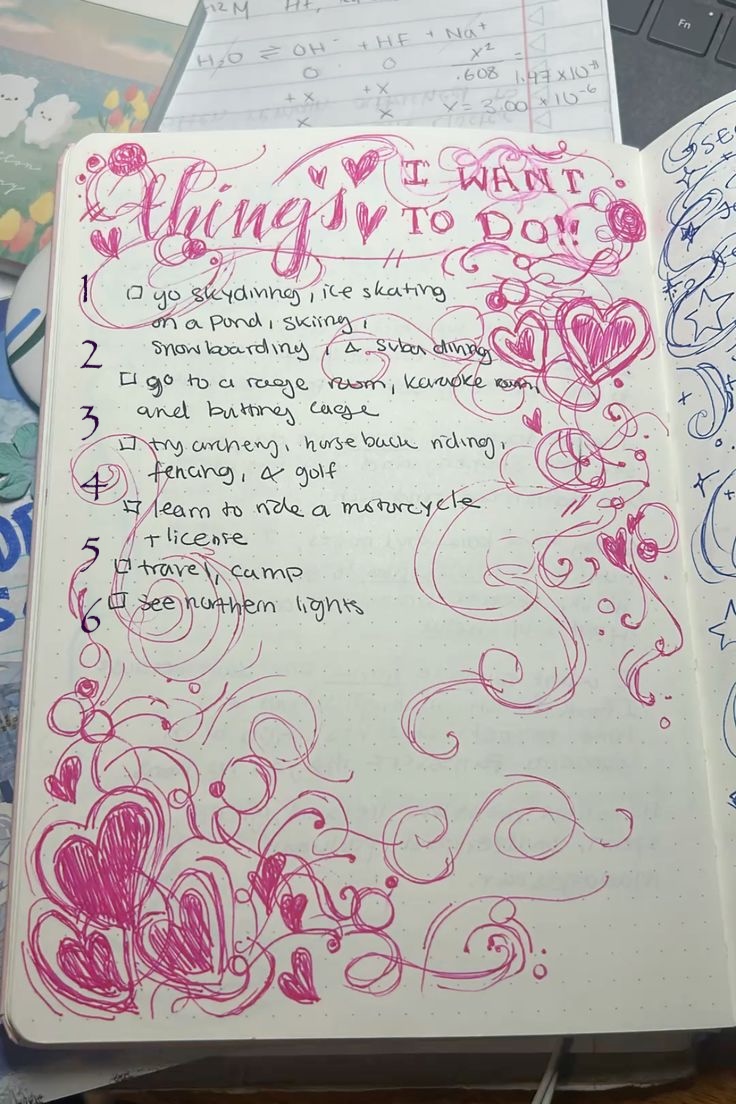 H₂O ⇌ OH⁻ + HF + Na⁺
O O
+x +x
x x
x² =
.608 1.47×10⁻¹¹
x = 3.00 ×10⁻⁶
Fn
things I WANT
TO DO!!
1 □ go skydiving, ice skating
on a pond, skiing,
2 snowboarding, & scuba diving
□ go to a rage room, karaoke room,
3 and batting cage
□ try archery, horse back riding,
4 fencing, & golf
□ learn to ride a motorcycle
5 + license
□ travel, camp
6 □ see northern lights